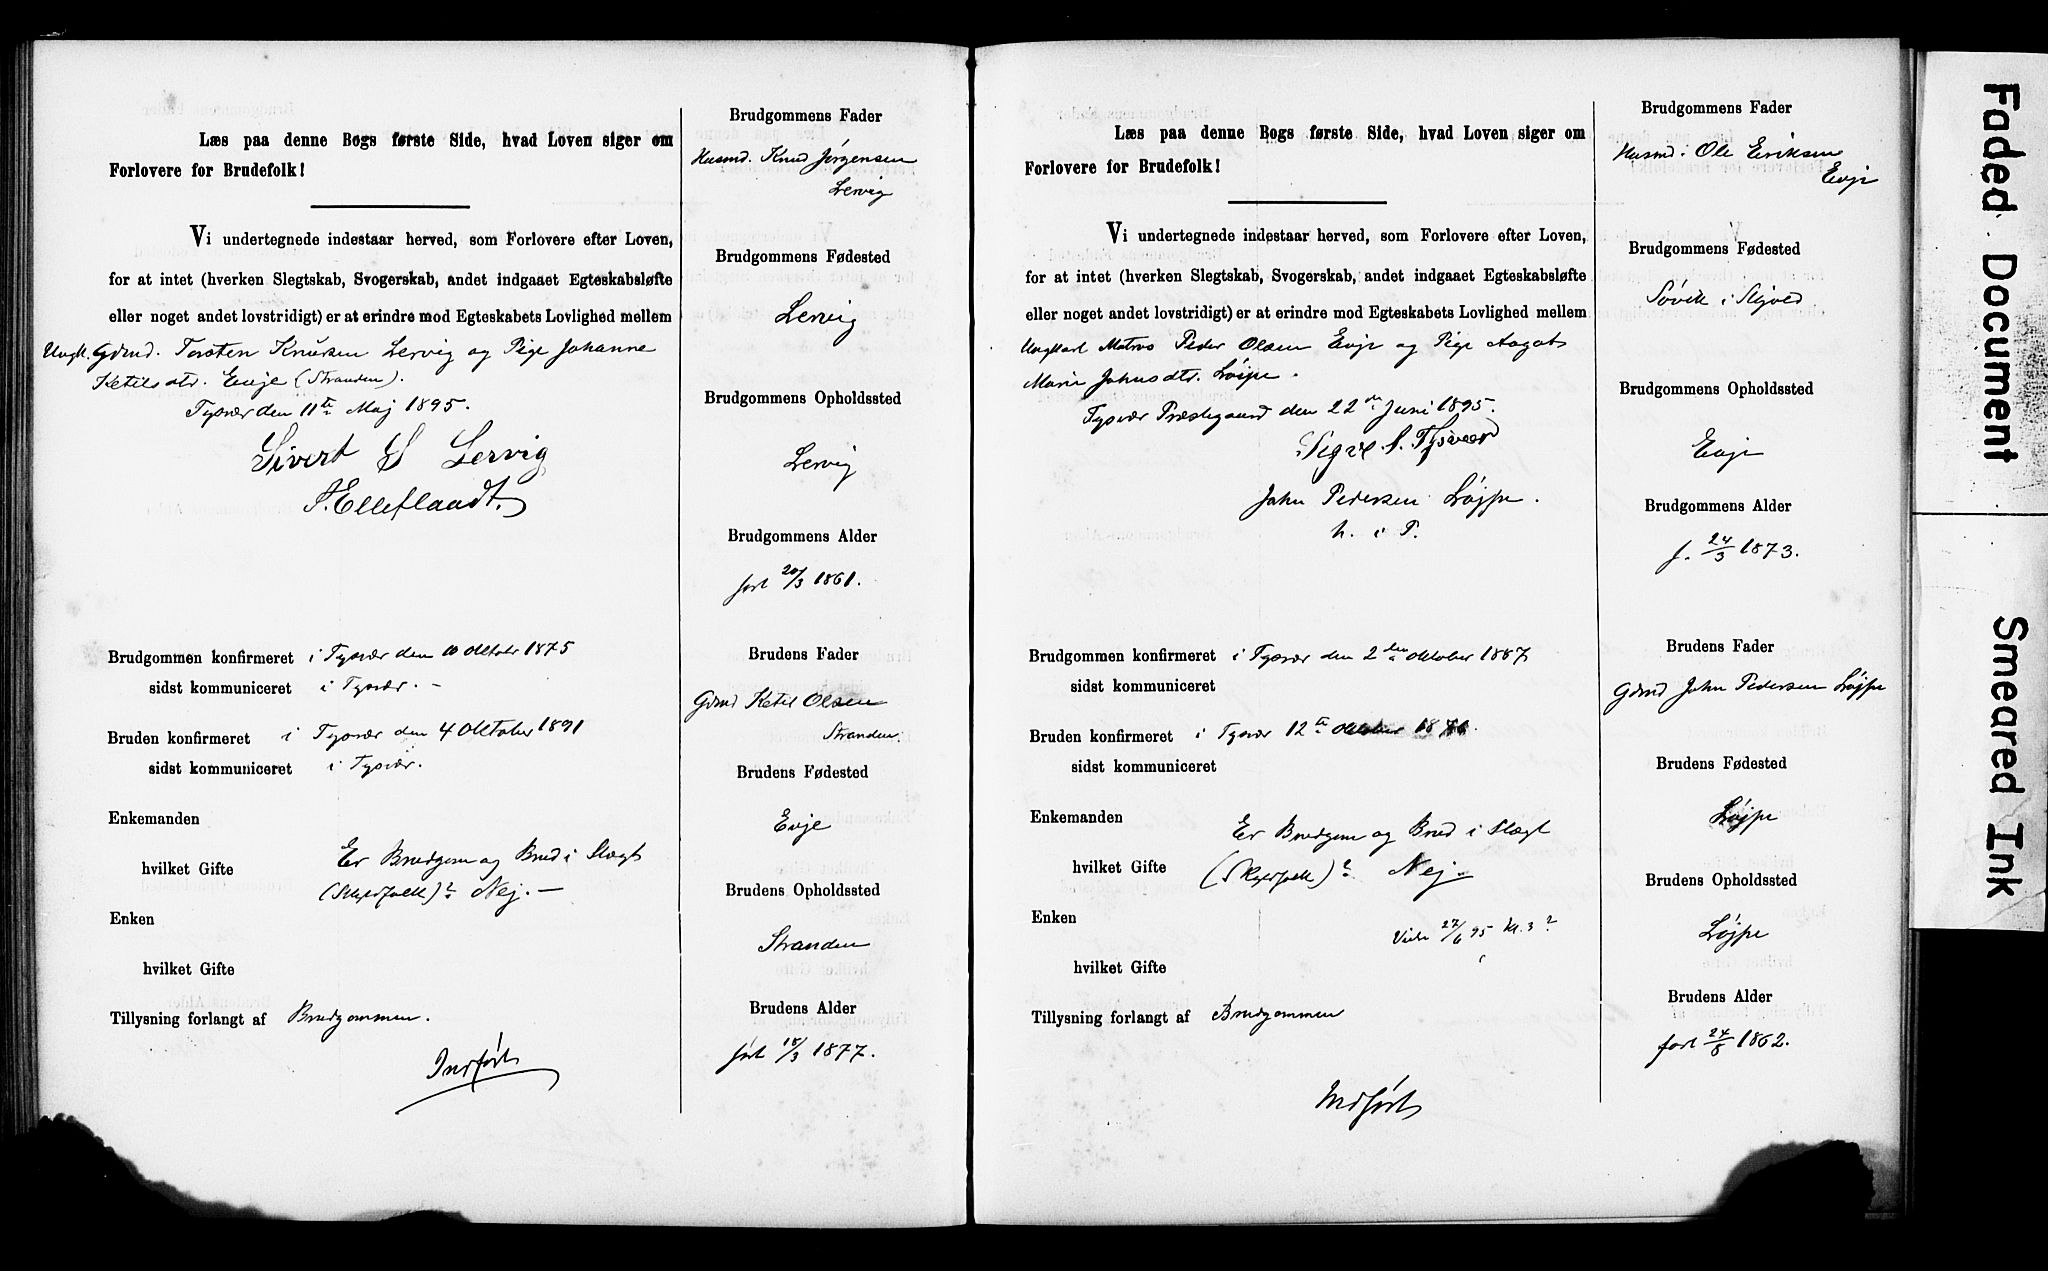 Læs paa denne Bogs første Side, hvad Loven siger om
Forlovere for Brudefolk!
Vi undertegnede indestaar herved, som Forlovere efter Loven,
for at intet (hverken Slegtskab, Svogerskab, andet indgaaet Egteskabsløfte
eller noget andet lovstridigt) er at erindre mod Egteskabets Lovlighed mellem
Ungk. Gdmd. Torsten Knutsen Lervig og Pige Johanne
Ketilsdtr. Evje (Stranden).
Tysvær den 11te Maj 1895.
Sivert S Lervig
S. Elleflaadt.
Brudgommen konfirmeret i Tysvær den 10 Oktobr 1875
sidst kommuniceret i Tysvær. -
Bruden konfirmeret i Tysvær den 4 Oktober 1891
sidst kommuniceret i Tysvær.
Enkemanden
Er Brudgom og Brud i Slægt
hvilket Gifte
(Skyldfolk)? Nej. -
Enken
hvilket Gifte
Tillysning forlangt af Brudgommen.
Indført
Brudgommens Fader
Husmd. Knud Jørgensen
Lervig
Brudgommens Fødested
Lervig
Brudgommens Opholdssted
Lervig
Brudgommens Alder
født 20/3 1861.
Brudens Fader
Gdmd Ketil Olsen
Stranden.
Brudens Fødested
Evje
Brudens Opholdssted
Stranden
Brudens Alder
født 18/3 1877.
Læs paa denne Bogs første Side, hvad Loven siger om
Forlovere for Brudefolk!
Vi undertegnede indestaar herved, som Forlovere efter Loven,
for at intet (hverken Slegtskab, Svogerskab, andet indgaaet Egteskabsløfte
eller noget andet lovstridigt) er at erindre mod Egteskabets Lovlighed mellem
Ungkarl Matros Peder Olsen Evje og Pige Aagot
Marie Johnsdtr. Løjpe.
Tysvær Præstegaard den 22de Juni 1895.
Sigve S. Tysvær
John Pedersen Løjpe.
h. i P.
Brudgommen konfirmeret i Tysvær den 2den oktober 1887
sidst kommuniceret
Bruden konfirmeret i Tysvær 12te oktober
sidst kommuniceret
Enkemanden
Er Brudgom og Brud i Slægt
hvilket Gifte
(Skyldfolk)? Nej.
Enken
Viede 27/6 95 Kl. 3?
hvilket Gifte
Tillysning forlangt af Brudgommen
Indført
Brudgommens Fader
Husmd. Ole Eriksen
Evje
Brudgommens Fødested
Søvik i
Brudgommens Opholdssted
Evje
Brudgommens Alder
f. 24/3 1873.
Brudens Fader
Gdmd John Pedersen Løjpe
Brudens Fødested
Løjpe
Brudens Opholdssted
Løjpe
Brudens Alder
født 24/8 1862.
Faded Document
Smeared Ink